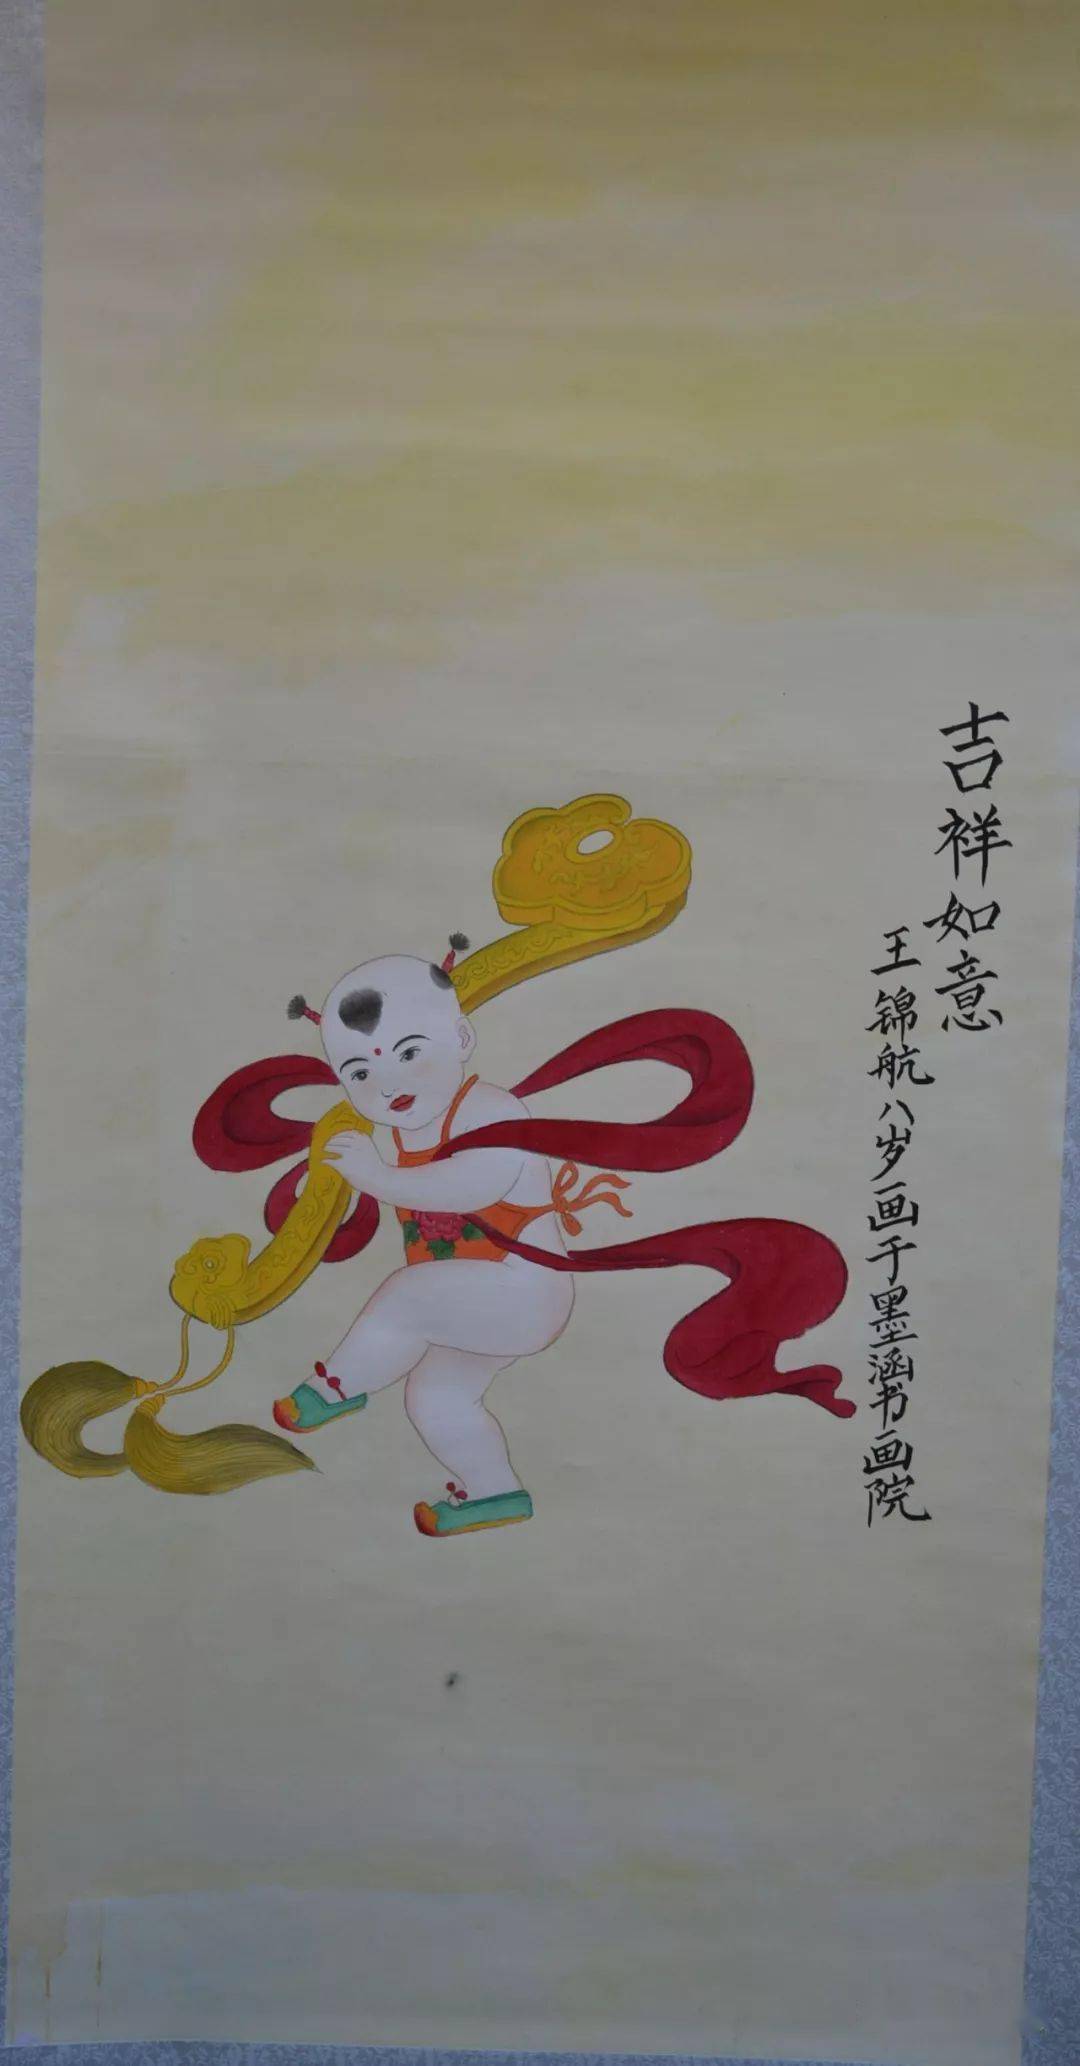 吉祥如意
王锦航八岁画于墨涵书画院